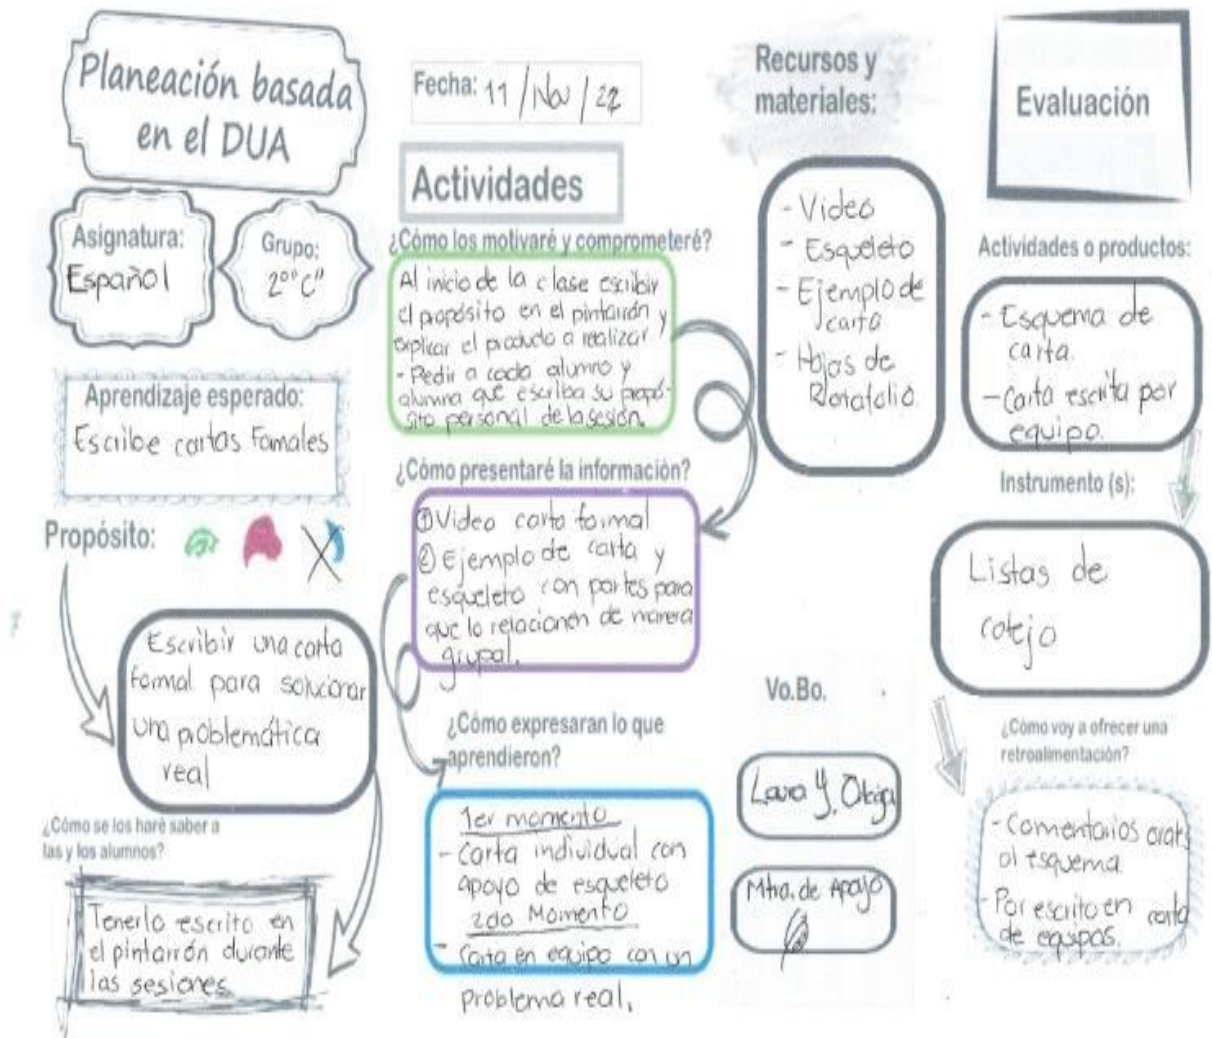 Planeación basada
en el DUA
Asignatura:
Español
Grupo:
2º "C"
Aprendizaje esperado:
Escribe cartas Formales
Propósito:
Escribir una carta
formal para solucionar
una problemática
real
¿Cómo se los haré saber a
las y los alumnos?
Tenerlo escrito en
el pintarrón durante
las sesiones.
Fecha: 11 / Nov / 22
Actividades
¿Cómo los motivaré y comprometeré?
Al inicio de la clase escribir
el propósito en el pintarrón y
explicar el producto a realizar
- Pedir a cada alumno y
alumna que escriba su propó-
sito personal de la sesión.
¿Cómo presentaré la información?
① Video carta formal
② Ejemplo de carta y
esqueleto con partes para
que lo relacionen de manera
grupal.
¿Cómo expresaran lo que
aprendieron?
1er momento
- Carta individual con
apoyo de esqueleto
2do Momento
- Carta en equipo con un
problema real.
Recursos y
materiales:
- Video
- Esqueleto
- Ejemplo de
carta
- Hojas de
Rotafolio
Vo.Bo.
Laura Y. Ortega
Mtra. de Apoyo
Evaluación
Actividades o productos:
- Esquema de
carta.
- Carta escrita por
equipo.
Instrumento (s):
Listas de
cotejo
¿Cómo voy a ofrecer una
retroalimentación?
- Comentarios orales
al esquema.
- Por escrito en carta
de equipos.